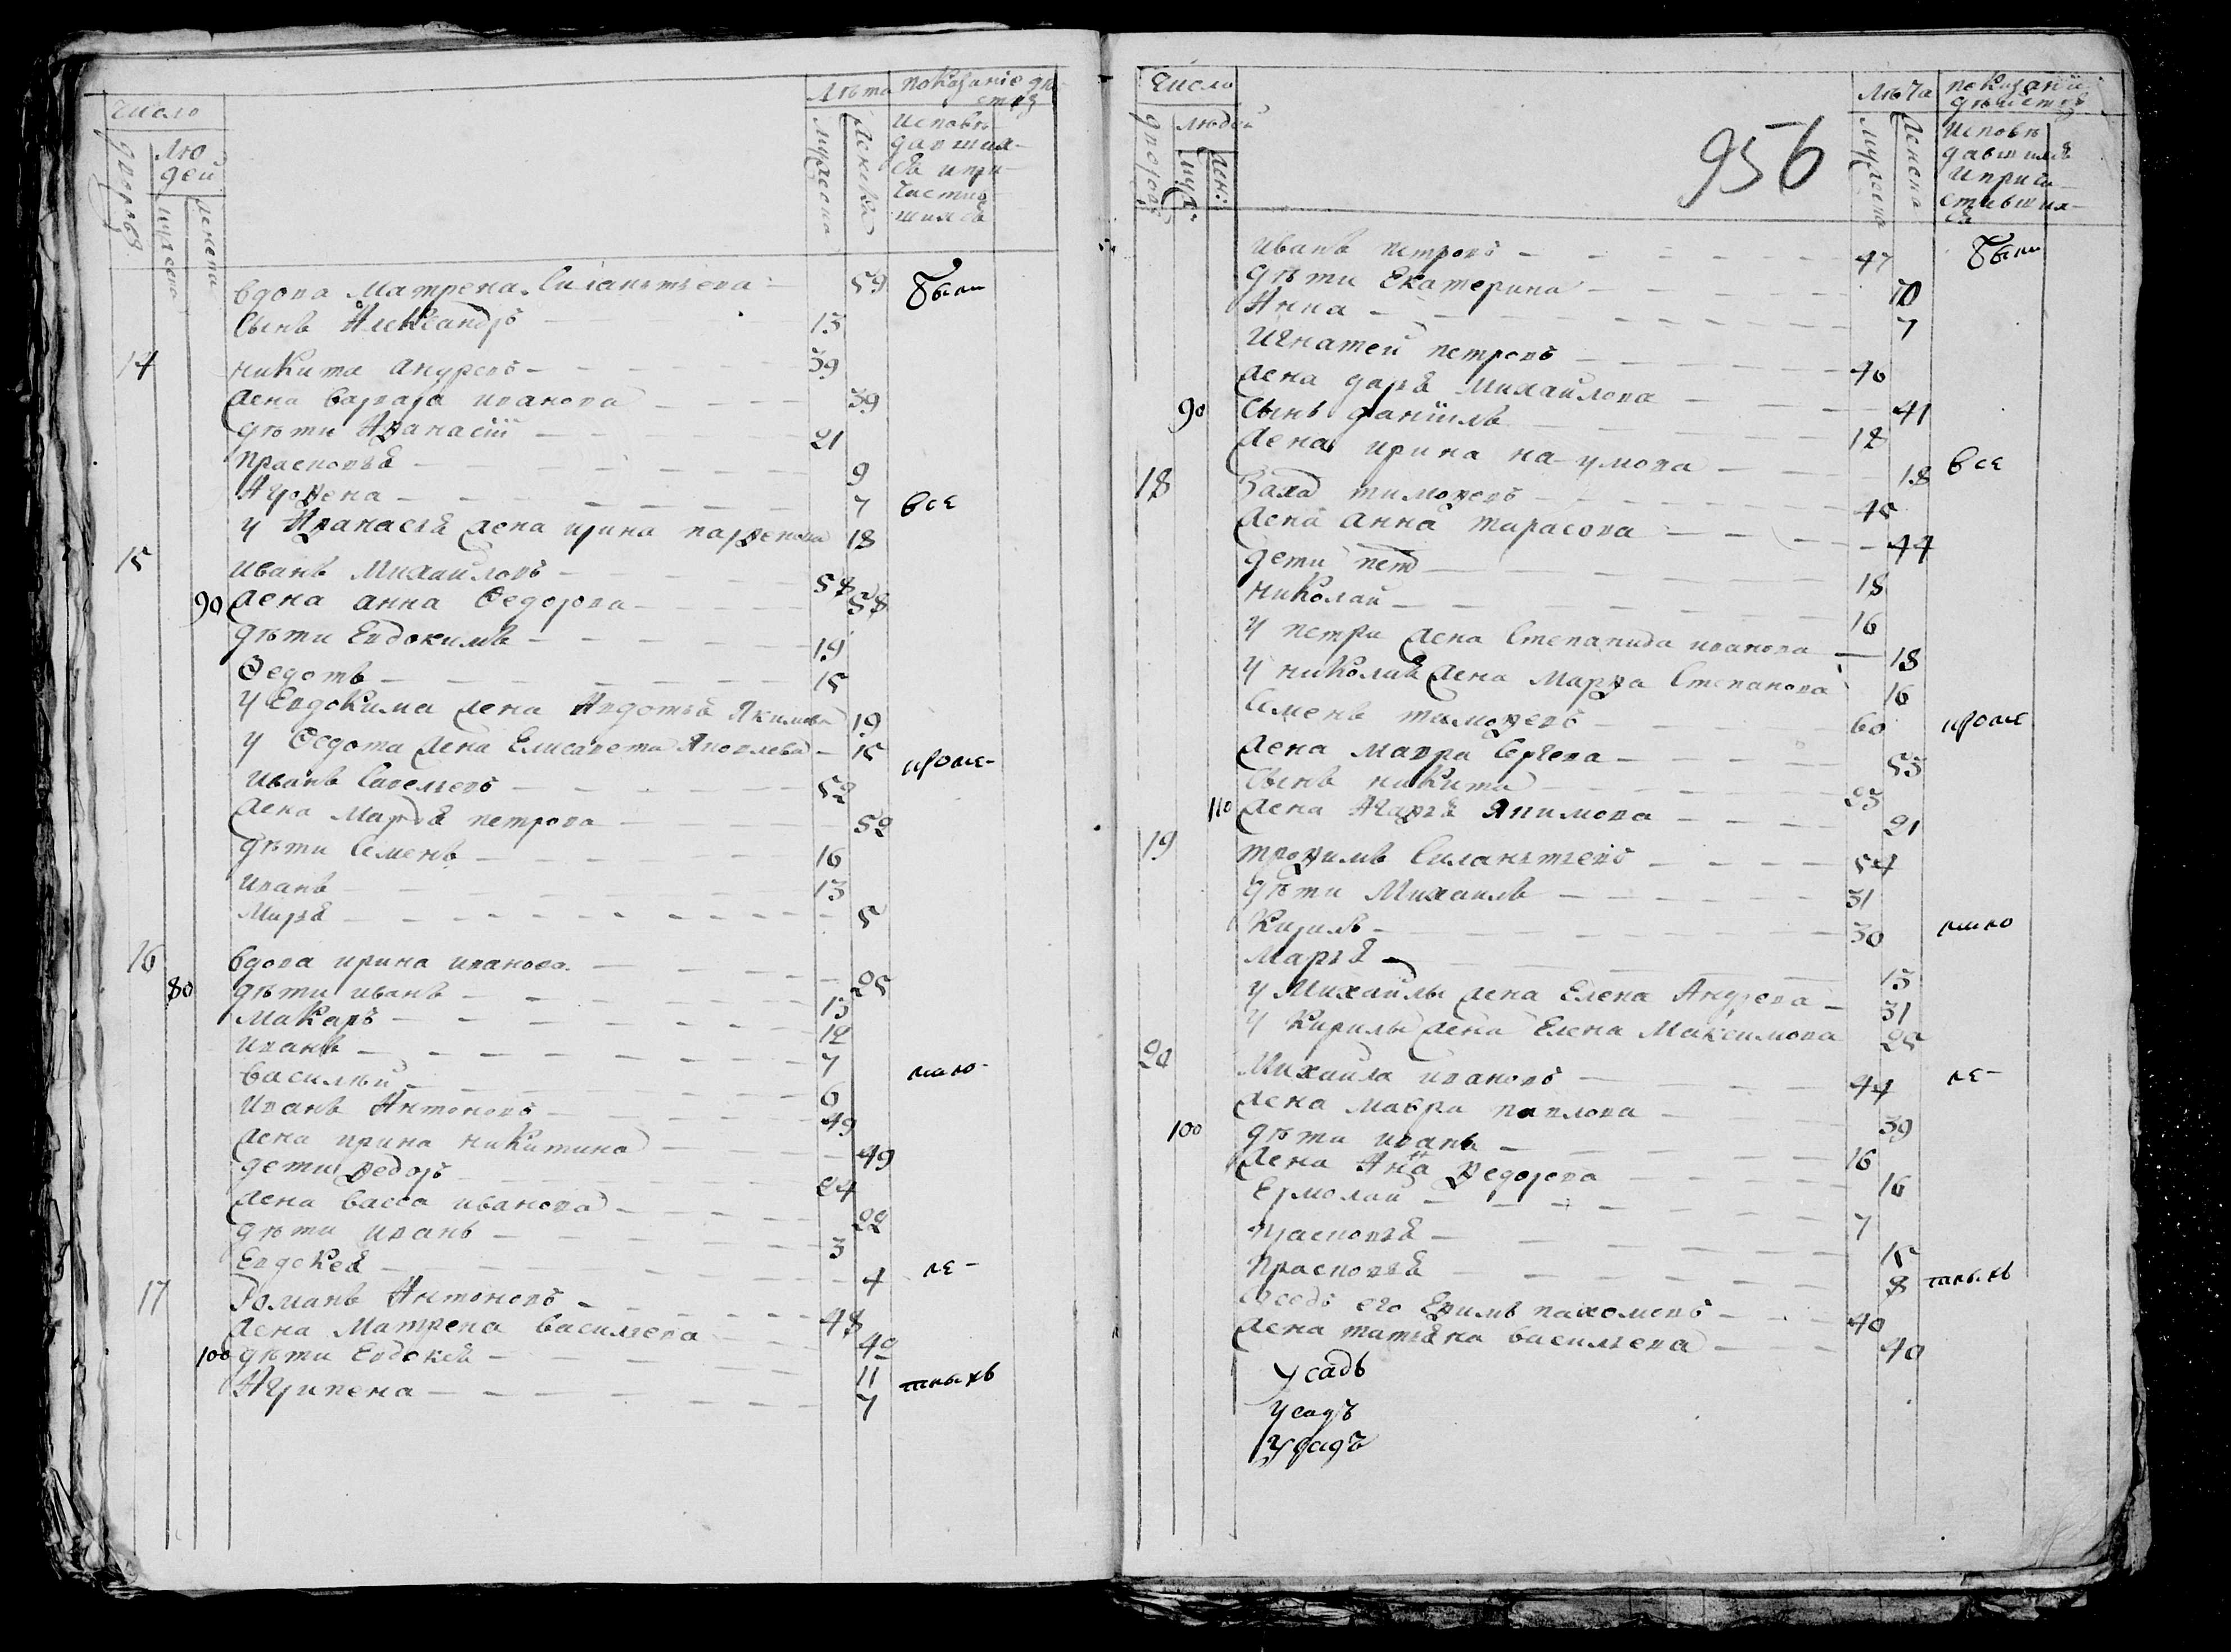 Число
Лѣта показание дѣ-
ствъ
дворовъ
Лю
дей
мужеска
женска
мужеска
женска
исповѣ
давших-
ся и при
частив
шихся
вдова Матрена Силантьева 59 были
Сынъ Александръ 13
14 никита андреевъ 39
жена варвара иванова 39
дѣти Афанасiй 21
прасковья 9
Агрофена 7 все
у Афанасья жена ирина парфенова 18
15 иванъ Михайловъ 58
90 жена анна Федорова 58
дѣти Евдокимъ 19
Федотъ 15
у Евдокима жена Авдотья Якимова 19
у Федота жена Елисавета Яковлева 15
кроме-
иванъ Савельевъ 52
жена Марфа петрова 52
дѣти Семенъ 16
иванъ 13
Марья 5
16 вдова ирина иванова 25
80 дѣти иванъ 13
Макаръ 12
иванъ 7
мало-
василѣй 6
иванъ Антоновъ 49
жена ирина никитина 49
дети федоръ 24
жена васса иванова 22
дѣти иванъ 3
Евдокея 4
ле-
17 Романъ Антоновъ 48
жена Матрена васильева 42
100 дѣти Евдокея 11
Агрипена 7 тныхъ
956
Число
дворовъ
людей
муж:
жен:
Лѣта показанiи
дѣйствъ
мужеска
женска
исповѣ
давшихся
и прича-
ставших-
ся
иванъ петровъ 47 были
дѣти Екатерина 10
Анна 7
игнатей петровъ 46
жена дарья михайлова 41
90 сынъ данiилъ 18
жена ирина наумова 18 все
18 Заха тимофеевъ 45
жена анна тарасова 44
дети пет 18
николай 16
у петра жена Степанида иванова 18
у николая жена Марфа Степанова 16
Семенъ тимофеевъ 60 кроме
жена мавра Сергеева 53
сынъ никита 23
110 жена Агафья Якимова 21
19 трофимъ Силантьевъ 54
дѣти Михаилъ 31
Кирилъ 30 мало
Марья 13
у Михайлы жена Елена Андреева 31
у Кирилы жена Елена Максимова 25
20 Михайла ивановъ 44 ле-
жена мавра павлова 39
100 дѣти иванъ 16
жена Анна федорова 16
Ермолай 7
прасковья 15
Прасковья 8 тныхъ
Соседъ его Ефимъ пахомовъ 40
жена татьяна васильева 40
усадъ
усадъ
усадъ